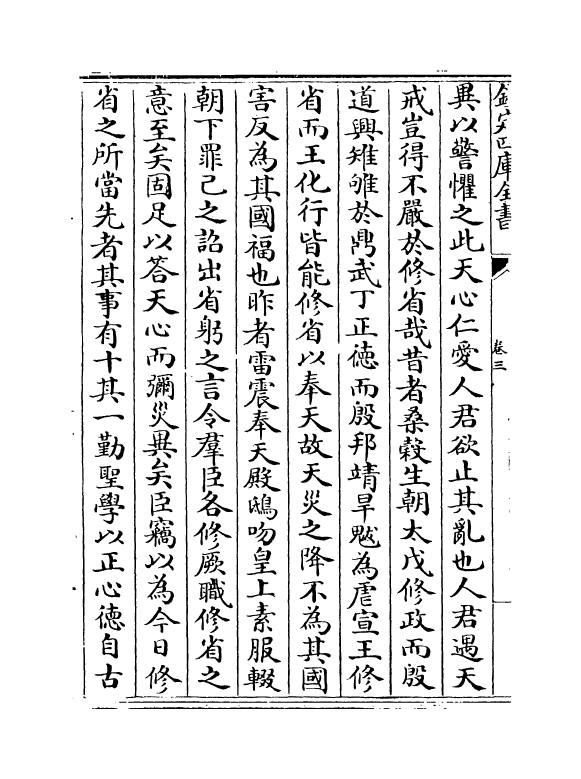 欽定四庫全書
卷三
異以警懼之此天心仁愛人君欲止其亂也人君遇天
戒豈得不嚴於修省哉昔者桑穀生朝太戊修政而殷
道興雉雊於鼎武丁正德而殷邦靖旱魃為虐宣王修
省而王化行皆能修省以奉天故天災之降不為其國
害反為其國福也昨者雷震奉天殿鴟吻皇上素服輟
朝下罪己之詔出省躬之言令羣臣各修厥職修省之
意至矣固足以答天心而彌災異矣臣竊以為今日修
省之所當先者其事有十其一勤聖學以正心德自古